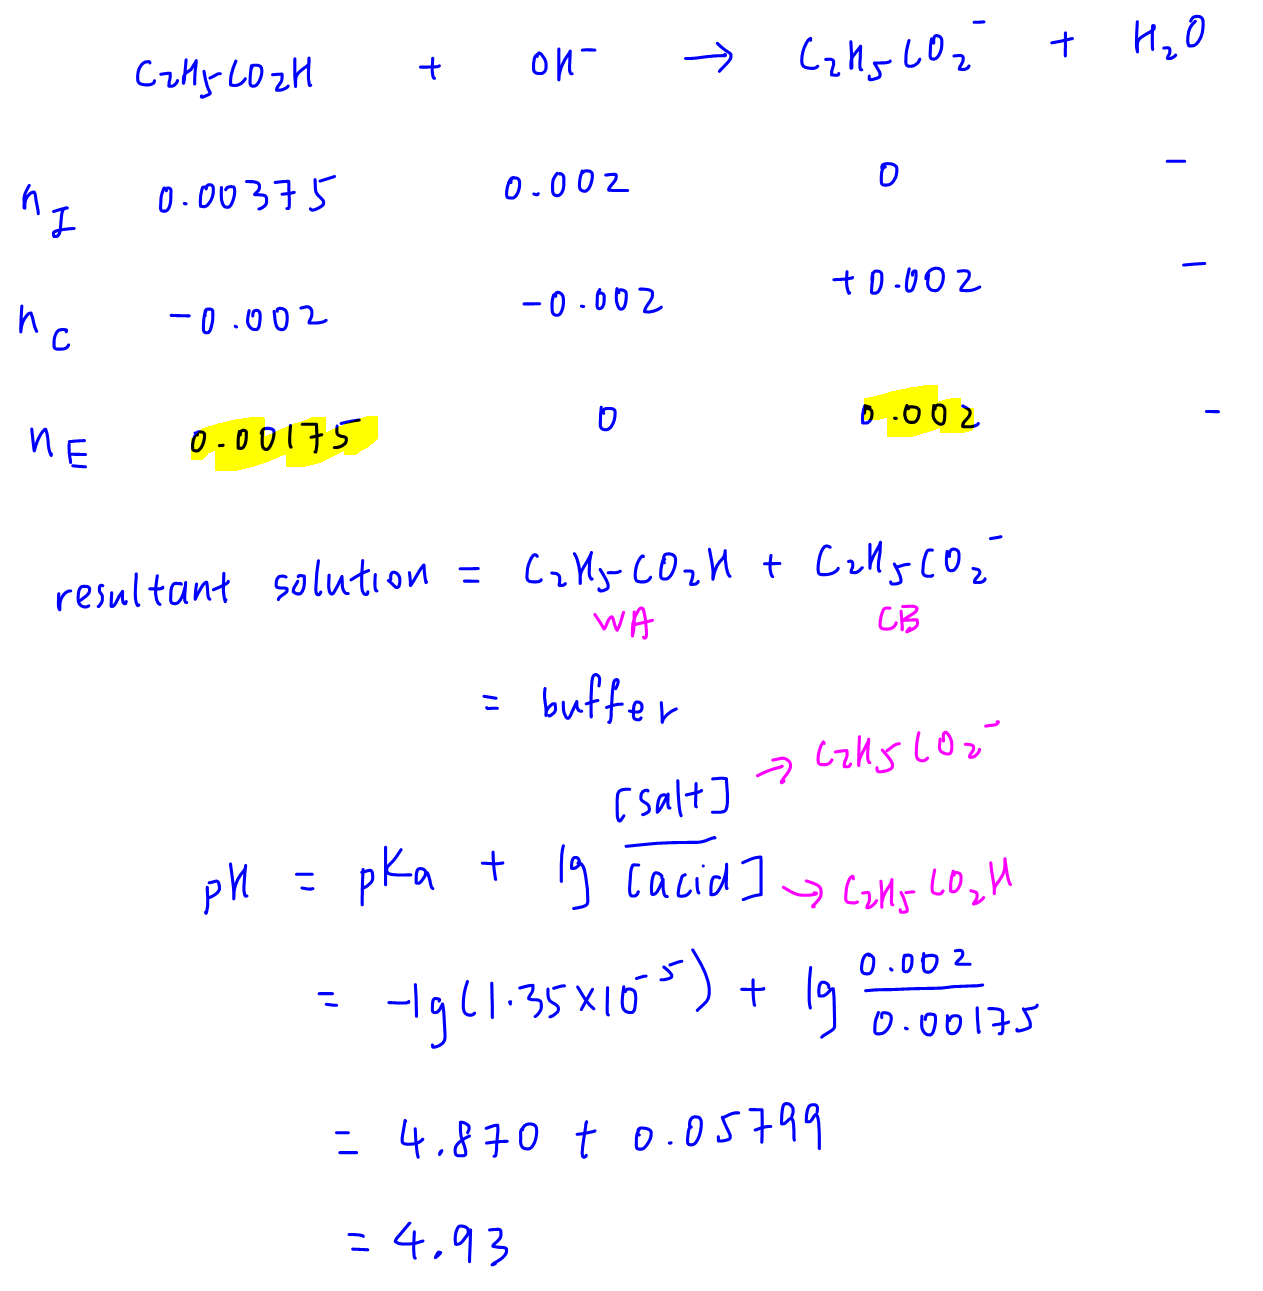 C₂H₅CO₂H + OH⁻ → C₂H₅CO₂⁻ + H₂O
n_I 0.00375 0.002 0 -
n_C -0.002 -0.002 +0.002 -
n_E 0.00175 0 0.002 -
resultant solution = C₂H₅CO₂H + C₂H₅CO₂⁻
WA CB
= buffer
pH = pKa + lg [salt]/[acid]
→ C₂H₅CO₂⁻
→ C₂H₅CO₂H
= -lg(1.35×10⁻⁵) + lg 0.002/0.00175
= 4.870 + 0.05799
= 4.93